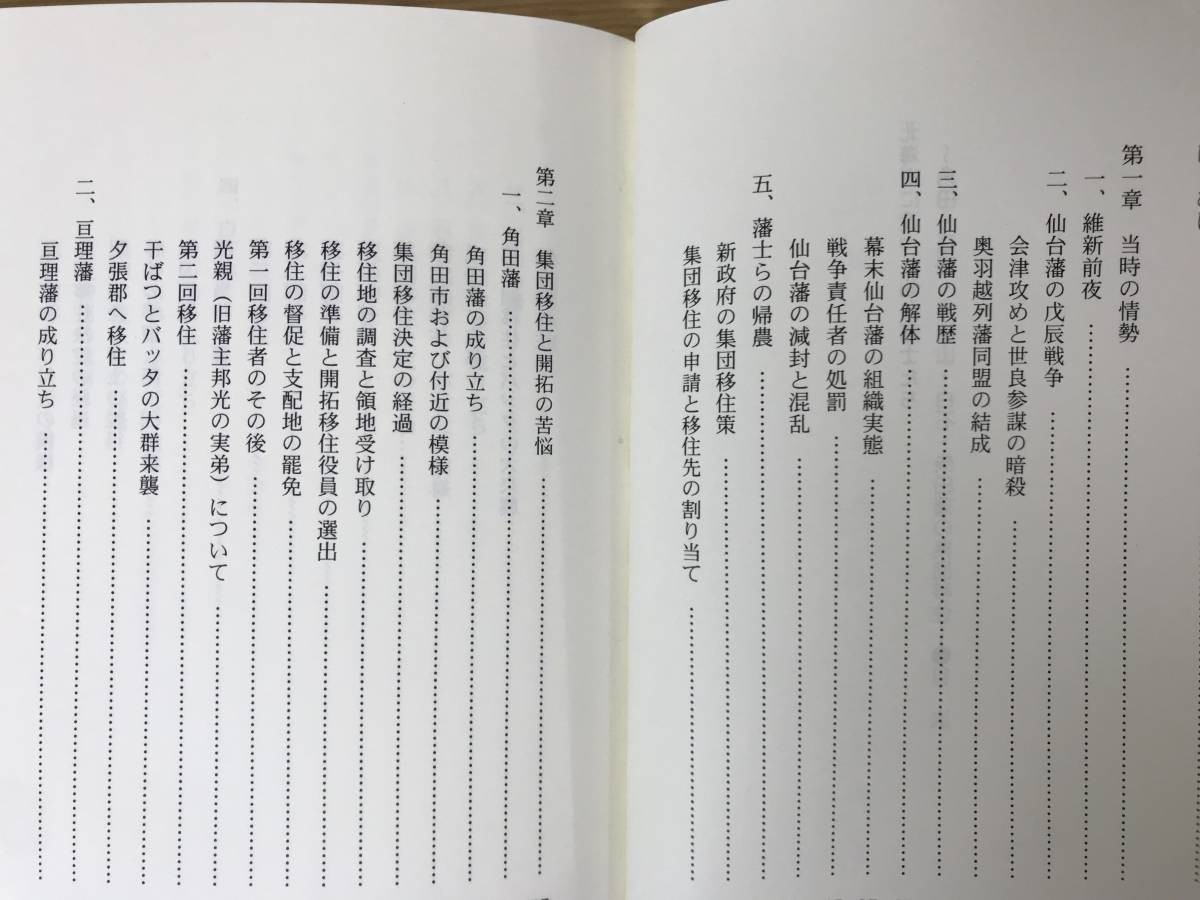 第一章　当時の情勢………………
一、維新前夜………………
二、仙台藩の戊辰戦争………………
会津攻めと世良参謀の暗殺………………
奥羽越列藩同盟の結成………………
三、仙台藩の戦歴………………
四、仙台藩の解体………………
幕末仙台藩の組織実態………………
戦争責任者の処罰………………
仙台藩の減封と混乱………………
五、藩士らの帰農………………
新政府の集団移住策………………
集団移住の申請と移住先の割り当て………………
第二章　集団移住と開拓の苦悩………………
一、角田藩………………
角田藩の成り立ち………………
角田市および付近の模様………………
集団移住決定の経過………………
移住地の調査と領地受け取り………………
移住の準備と開拓移住役員の選出………………
移住の督促と支配地の罷免………………
第一回移住者のその後………………
光親（旧藩主邦光の実弟）について………………
第二回移住………………
干ばつとバッタの大群来襲………………
夕張郡へ移住………………
二、亘理藩………………
亘理藩の成り立ち………………